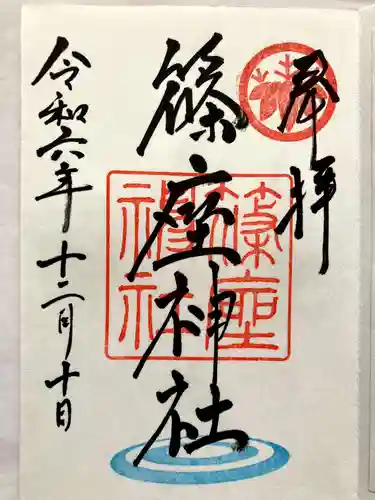 奉拝
篠座神社
篠座
神社
令和六年十二月十日